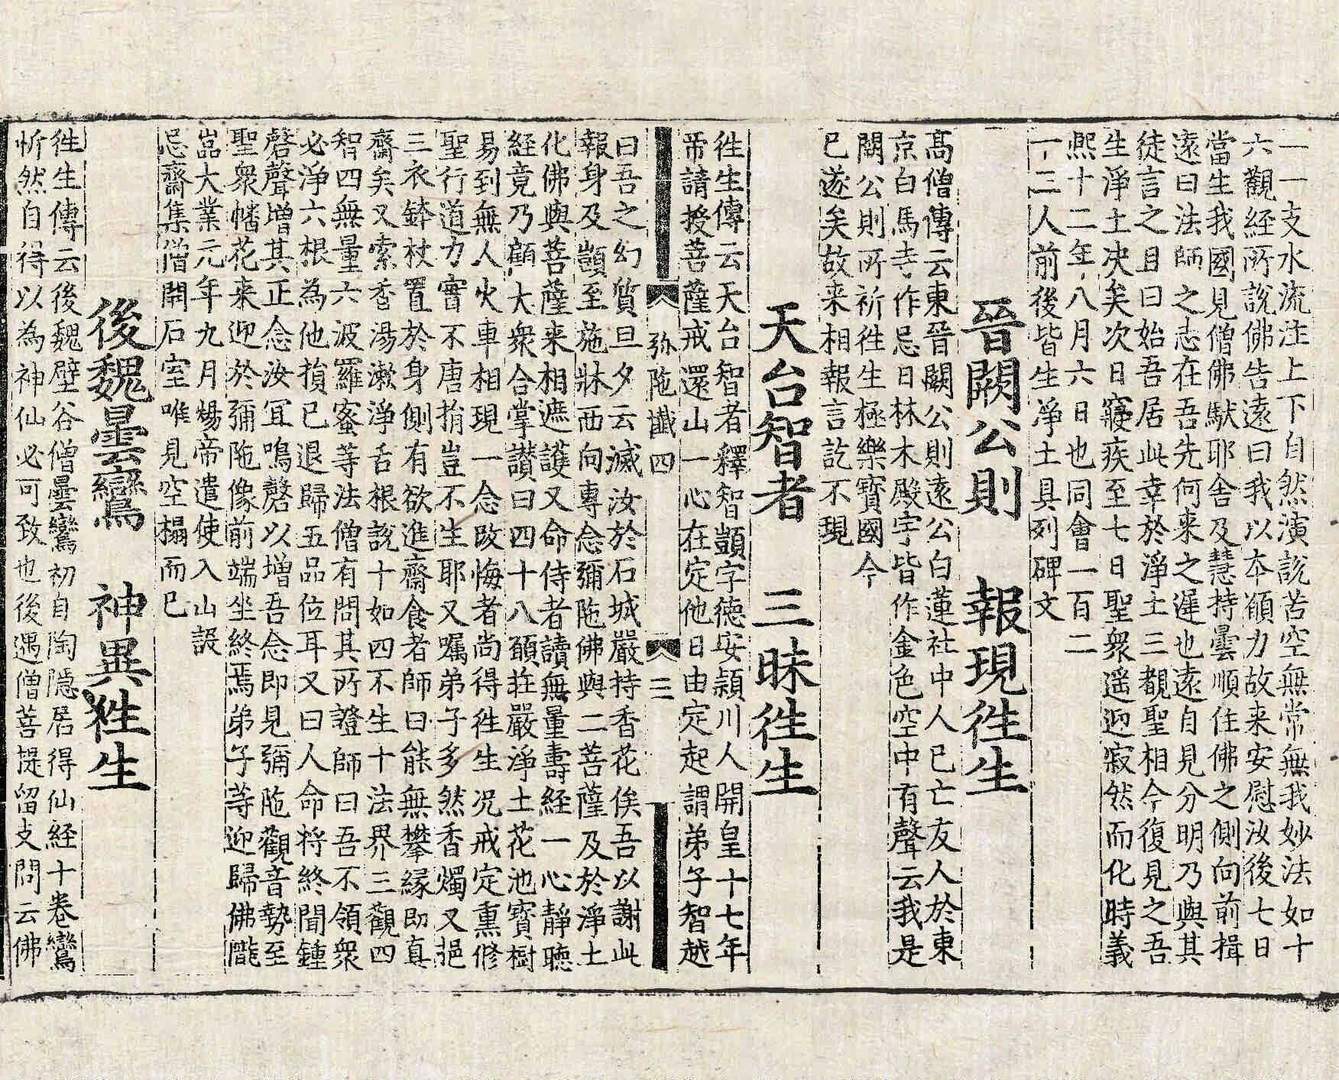 一一支水流注上下自然演說苦空無常無我妙法如十
六觀經所說佛告遠曰我以本願力故来安慰汝後七日
當生我國見僧佛馱耶舍及慧持曇順住佛之側向前揖
遠曰法師之志在吾先何来之遲也遠自見分明乃與其
徒言之且曰始吾居此幸於淨土三覩聖相今復見之吾
生淨土决矣次日寢疾至七日聖衆遥迎寂然而化時義
熈十二年八月六日也同會一百二
十三人前後皆生淨土具列碑文
晉闕公則　報現徃生
高僧傳云東晉闕公則遠公白蓮社中人已亡友人於東
京白馬寺作忌日林木殿宇皆作金色空中有聲云我是
闕公則所祈徃生極樂寳國今
已遂矣故来相報言訖不現
天台智者　三昧徃生
徃生傳云天台智者釋智顗字德安潁川人開皇十七年
帝請授菩薩戒還山一心在定他日由定起謂弟子智越
弥陁讖四　三
曰吾之幻質旦夕云滅汝於石城嚴持香花俟吾以謝此
報身及顗至施牀西向專念彌陁佛與二菩薩及於淨土
化佛與菩薩来相遮護又命侍者讀無量壽經一心靜聽
經竟乃顧大衆合掌讃曰四十八願莊嚴淨土花池寳樹
易到無人火車相現一念改悔者尚得徃生况戒定熏修
聖行道力實不唐捐豈不生耶又囑弟子多然香燭又挹
三衣鉢杖置於身側有欲進齋食者師曰能無攀縁即真
齋矣又索香湯漱淨舌根說十如四不生十法界三觀四
智四無量六波羅蜜等法僧有問其所證師曰吾不領衆
必淨六根為他損已退歸五品位耳又曰人命将終聞鍾
磬聲增其正念汝冝鳴磬以增吾念即見彌陁觀音勢至
聖衆幡花来迎於彌陁像前端坐終焉弟子等迎歸佛隴
嵓大業元年九月煬帝遣使入山設
忌齋集僧開石室唯見空榻而已
後魏曇鸞　神異徃生
徃生傳云後魏壁谷僧曇鸞初自陶隱居得仙経十卷鸞
忻然自得以為神仙必可致也後遇僧菩提留支問云佛